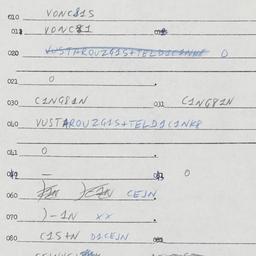 010 VONC81S
011 VONC81
020 VUSTAROUZG1S+TELD1C1NK8 0
021 0
030 C1NG81N 031 C1NG81N
040 VUSTAROUZG1S+TELD1C1NK8
041 0
— 0
060 CEJN
070 )-1N XX
080 C1S+N D1CEJN